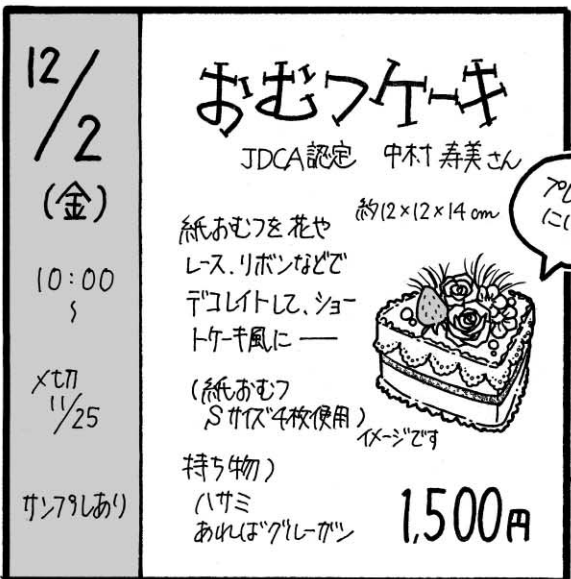 12/2
(金)
10:00
〜
〆切
11/25
サンプルあり
おむつケーキ
JDCA認定 中村 寿美さん
約12×12×14cm
紙おむつを花や
レース、リボンなどで
デコレイトして、ショー
トケーキ風に ──
(紙おむつ
Sサイズ4枚使用)
イメージです
持ち物)
ハサミ
あればグルーガン
1,500円
プレ
にい